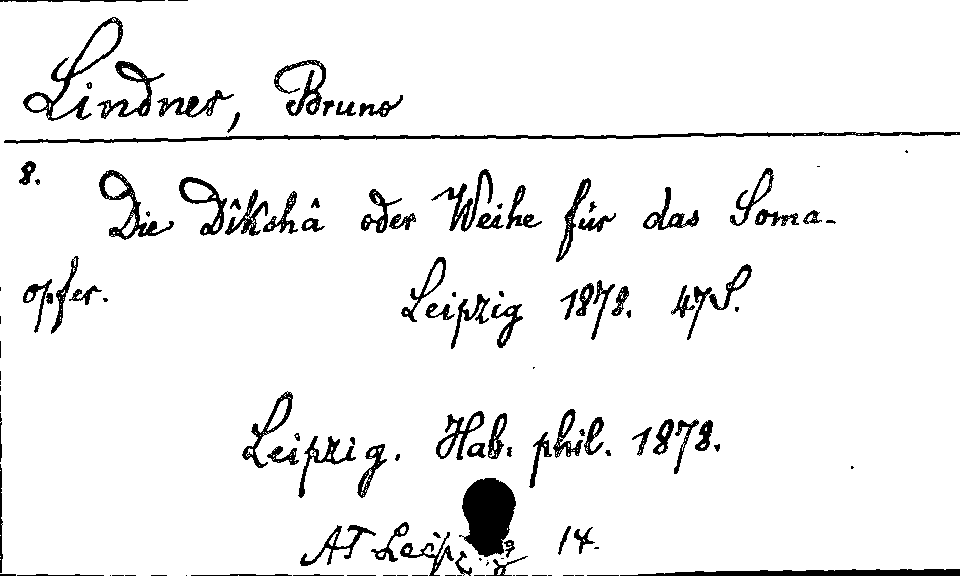 Lindner, Bruno
8.
Die Dîkshâ oder Weihe für das Soma-
opfer. Leipzig 1878. 47 S.
Leipzig. Hab. phil. 1878.
AT Leipzig 14.